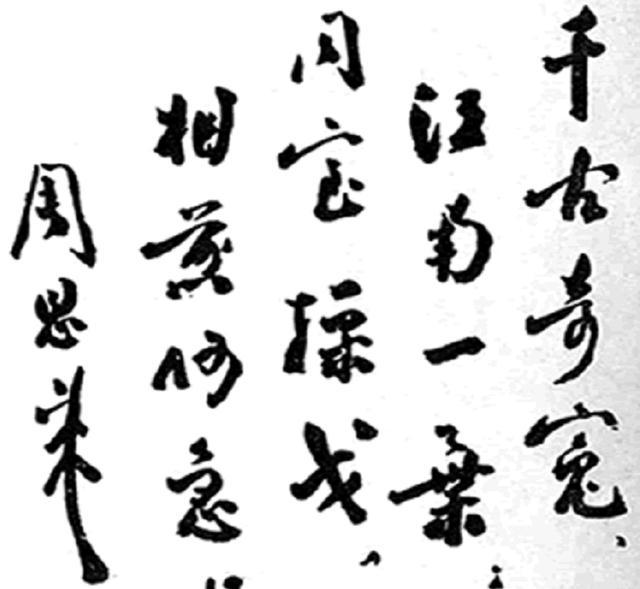 千古奇冤、
江南一葉；
同室操戈，
相煎何急
周恩来